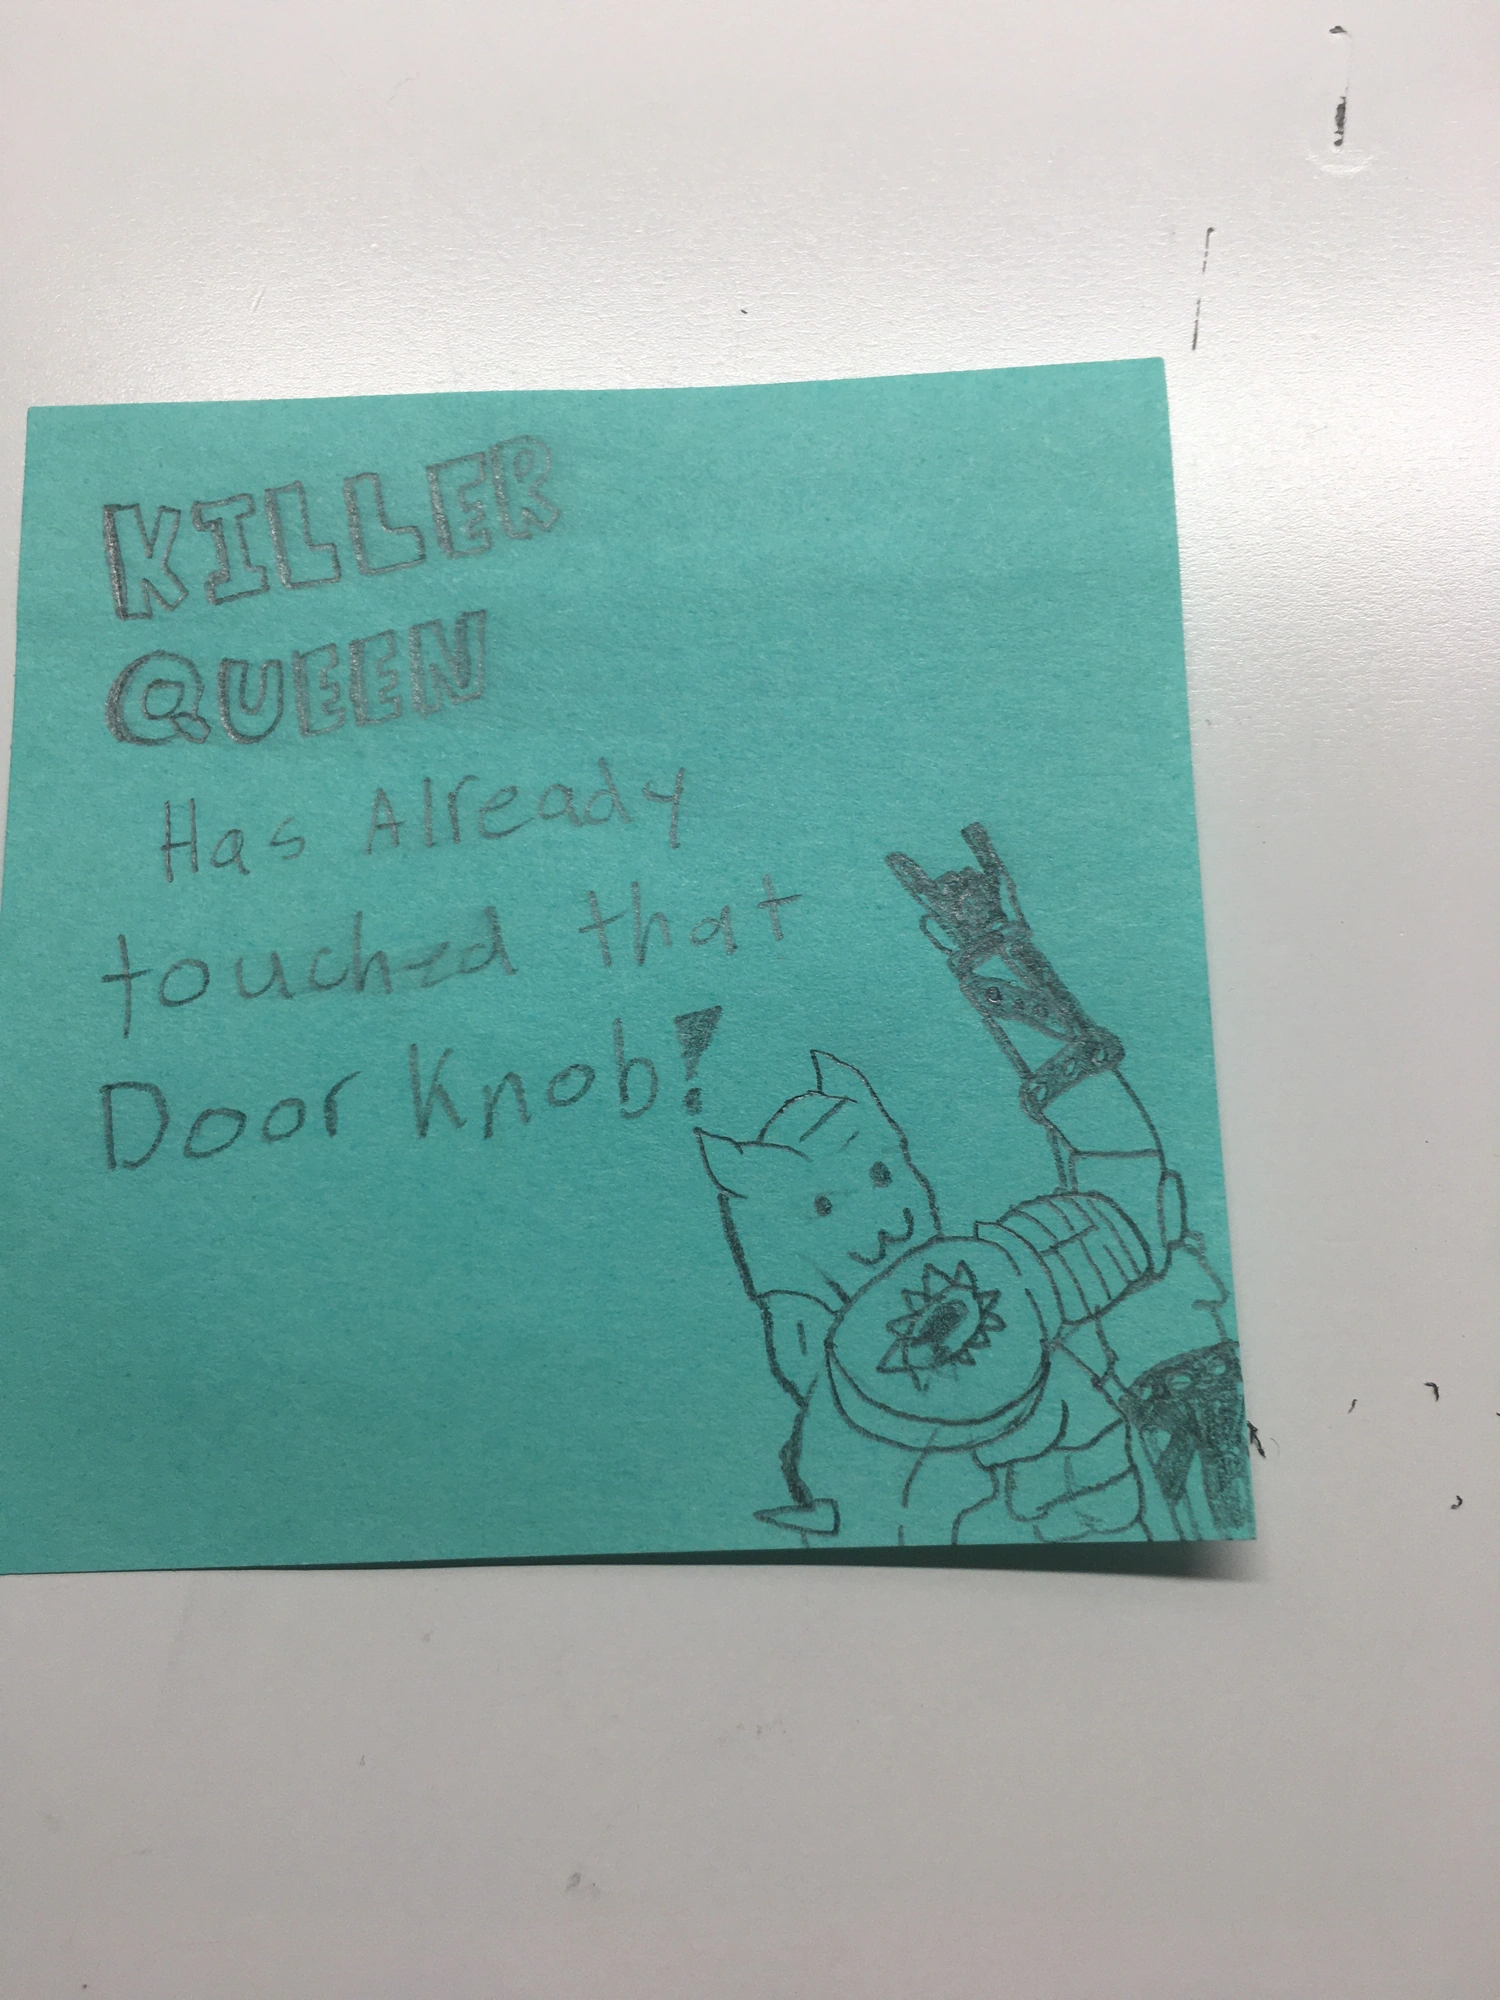 KILLER
QUEEN
Has Already
touched that
Door Knob!